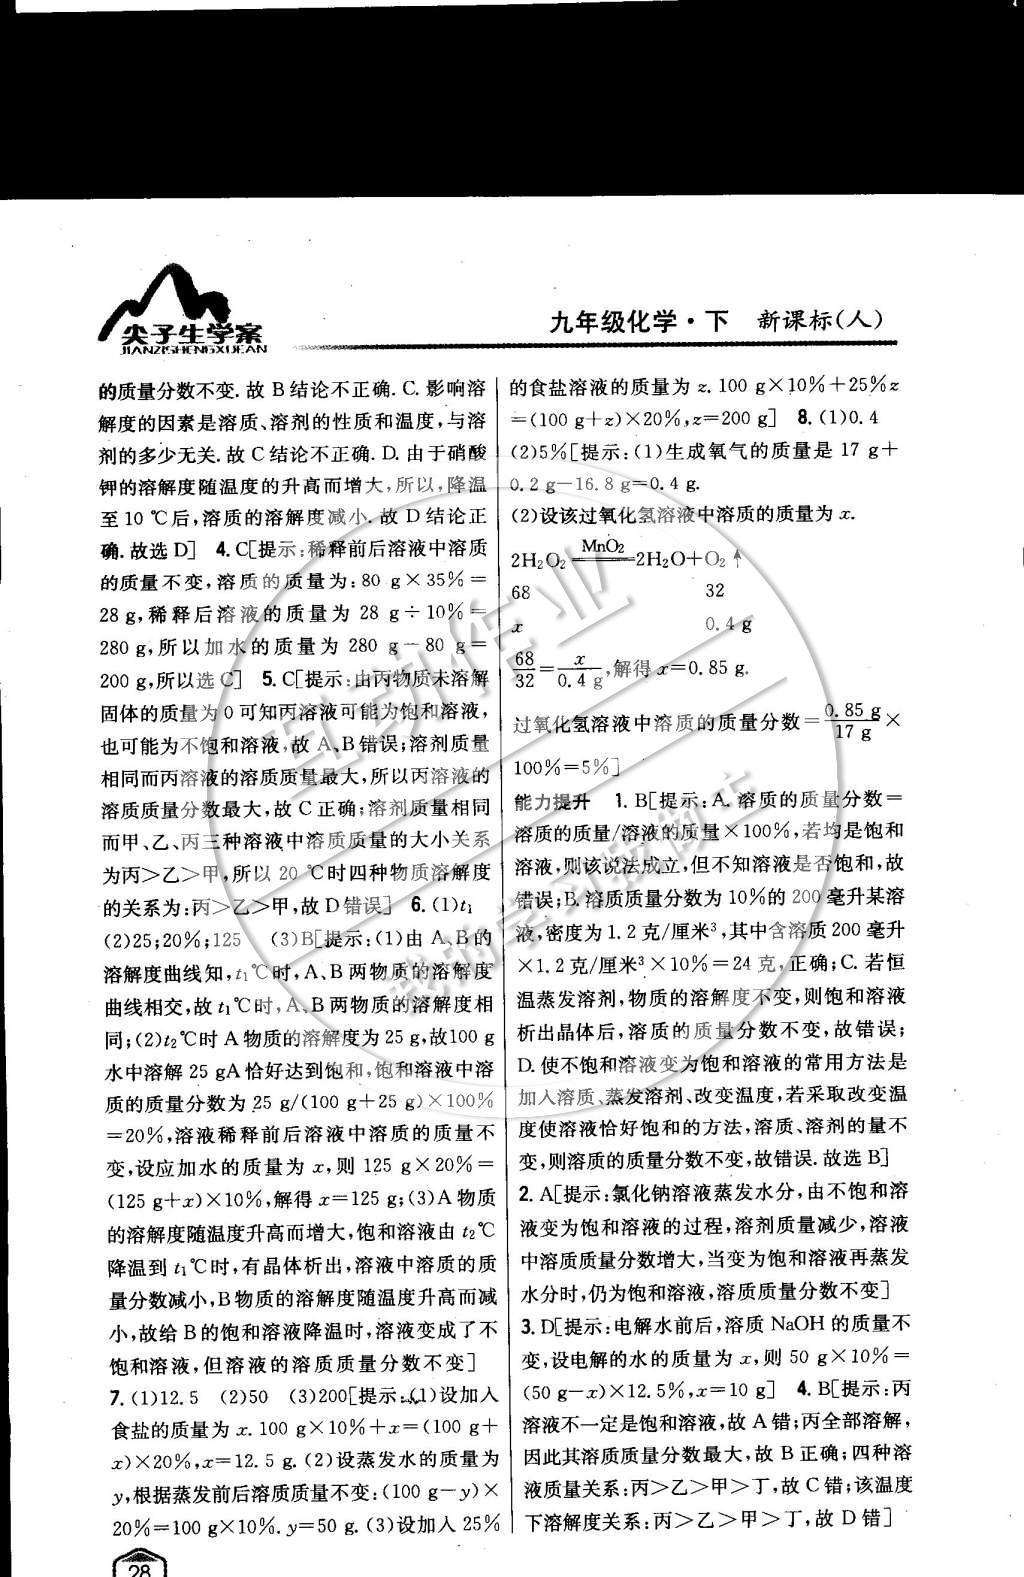 尖子生学案
JIANZISHENGXUEAN
九年级化学·下 新课标(人)
的质量分数不变. 故 B 结论不正确. C. 影响溶
解度的因素是溶质、溶剂的性质和温度,与溶
剂的多少无关. 故 C 结论不正确. D. 由于硝酸
钾的溶解度随温度的升高而增大,所以,降温
至 10 ℃后,溶质的溶解度减小. 故 D 结论正
确. 故选 D] 4. C[提示:稀释前后溶液中溶质
的质量不变,溶质的质量为:80 g×35%=
28 g,稀释后溶液的质量为 28 g÷10%=
280 g,所以加水的质量为 280 g-80 g=
200 g,所以选 C] 5. C[提示:由丙物质未溶解
固体的质量为 0 可知丙溶液可能为饱和溶液,
也可能为不饱和溶液,故 A、B 错误;溶剂质量
相同而丙溶液的溶质质量最大,所以丙溶液的
溶质质量分数最大,故 C 正确;溶剂质量相同
而甲、乙、丙三种溶液中溶质质量的大小关系
为丙>乙>甲,所以 20 ℃时四种物质溶解度
的关系为:丙>乙>甲,故 D 错误] 6. (1)t₁
(2)25;20%;125 (3)B[提示:(1)由 A、B 的
溶解度曲线知,t₁℃时,A、B 两物质的溶解度
曲线相交,故 t₁℃时,A、B 两物质的溶解度相
同;(2)t₂℃时 A 物质的溶解度为 25 g,故100 g
水中溶解 25 gA 恰好达到饱和,饱和溶液中溶
质的质量分数为 25 g/(100 g+25 g)×100%
=20%,溶液稀释前后溶液中溶质的质量不
变,设应加水的质量为 x,则 125 g×20%=
(125 g+x)×10%,解得 x=125 g;(3)A 物质
的溶解度随温度升高而增大,饱和溶液由 t₂℃
降温到 t₁℃时,有晶体析出,溶液中溶质的质
量分数减小,B 物质的溶解度随温度升高而减
小,故给 B 的饱和溶液降温时,溶液变成了不
饱和溶液,但溶液的溶质质量分数不变]
7. (1)12.5 (2)50 (3)200[提示:(1)设加入
食盐的质量为 x. 100 g×10%+x=(100 g+
x)×20%,x=12.5 g. (2)设蒸发水的质量为
y,根据蒸发前后溶质质量不变:(100 g-y)×
20%=100 g×10%. y=50 g. (3)设加入 25%
的食盐溶液的质量为 z. 100 g×10%+25%z
=(100 g+z)×20%,z=200 g] 8. (1)0.4
(2)5%[提示:(1)生成氧气的质量是 17 g+
0.2 g-16.8 g=0.4 g.
(2)设该过氧化氢溶液中溶质的质量为 x.
2H₂O₂ ==MnO₂== 2H₂O+O₂↑
68 32
x 0.4 g
68/32=x/0.4 g,解得 x=0.85 g.
过氧化氢溶液中溶质的质量分数=0.85 g/17 g×
100%=5%]
能力提升 1. B[提示:A. 溶质的质量分数=
溶质的质量/溶液的质量×100%,若均是饱和
溶液,则该说法成立,但不知溶液是否饱和,故
错误;B. 溶质质量分数为 10%的 200 毫升某溶
液,密度为 1.2 克/厘米³,其中含溶质 200 毫升
×1.2 克/厘米³×10%=24 克,正确;C. 若恒
温蒸发溶剂,物质的溶解度不变,则饱和溶液
析出晶体后,溶质的质量分数不变,故错误;
D. 使不饱和溶液变为饱和溶液的常用方法是
加入溶质、蒸发溶剂、改变温度,若采取改变温
度使溶液恰好饱和的方法,溶质、溶剂的量不
变,则溶质的质量分数不变,故错误. 故选 B]
2. A[提示:氯化钠溶液蒸发水分,由不饱和溶
液变为饱和溶液的过程,溶剂质量减少,溶液
中溶质质量分数增大,当变为饱和溶液再蒸发
水分时,仍为饱和溶液,溶质质量分数不变]
3. D[提示:电解水前后,溶质 NaOH 的质量不
变,设电解的水的质量为 x,则 50 g×10%=
(50 g-x)×12.5%,x=10 g] 4. B[提示:丙
溶液不一定是饱和溶液,故 A 错;丙全部溶解,
因此其溶质质量分数最大,故 B 正确;四种溶
液质量关系:丙>乙>甲>丁,故 C 错;该温度
下溶解度关系:丙>乙>甲>丁,故 D 错]
28